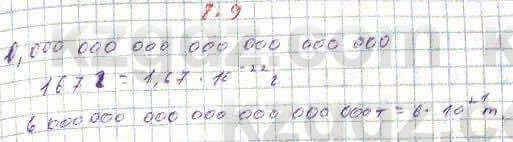 7.9
0,000 000 000 000 000 000 000
167 г = 1,67 · 10⁻²² г
6 000 000 000 000 000 000 000т = 6 · 10²¹ т.